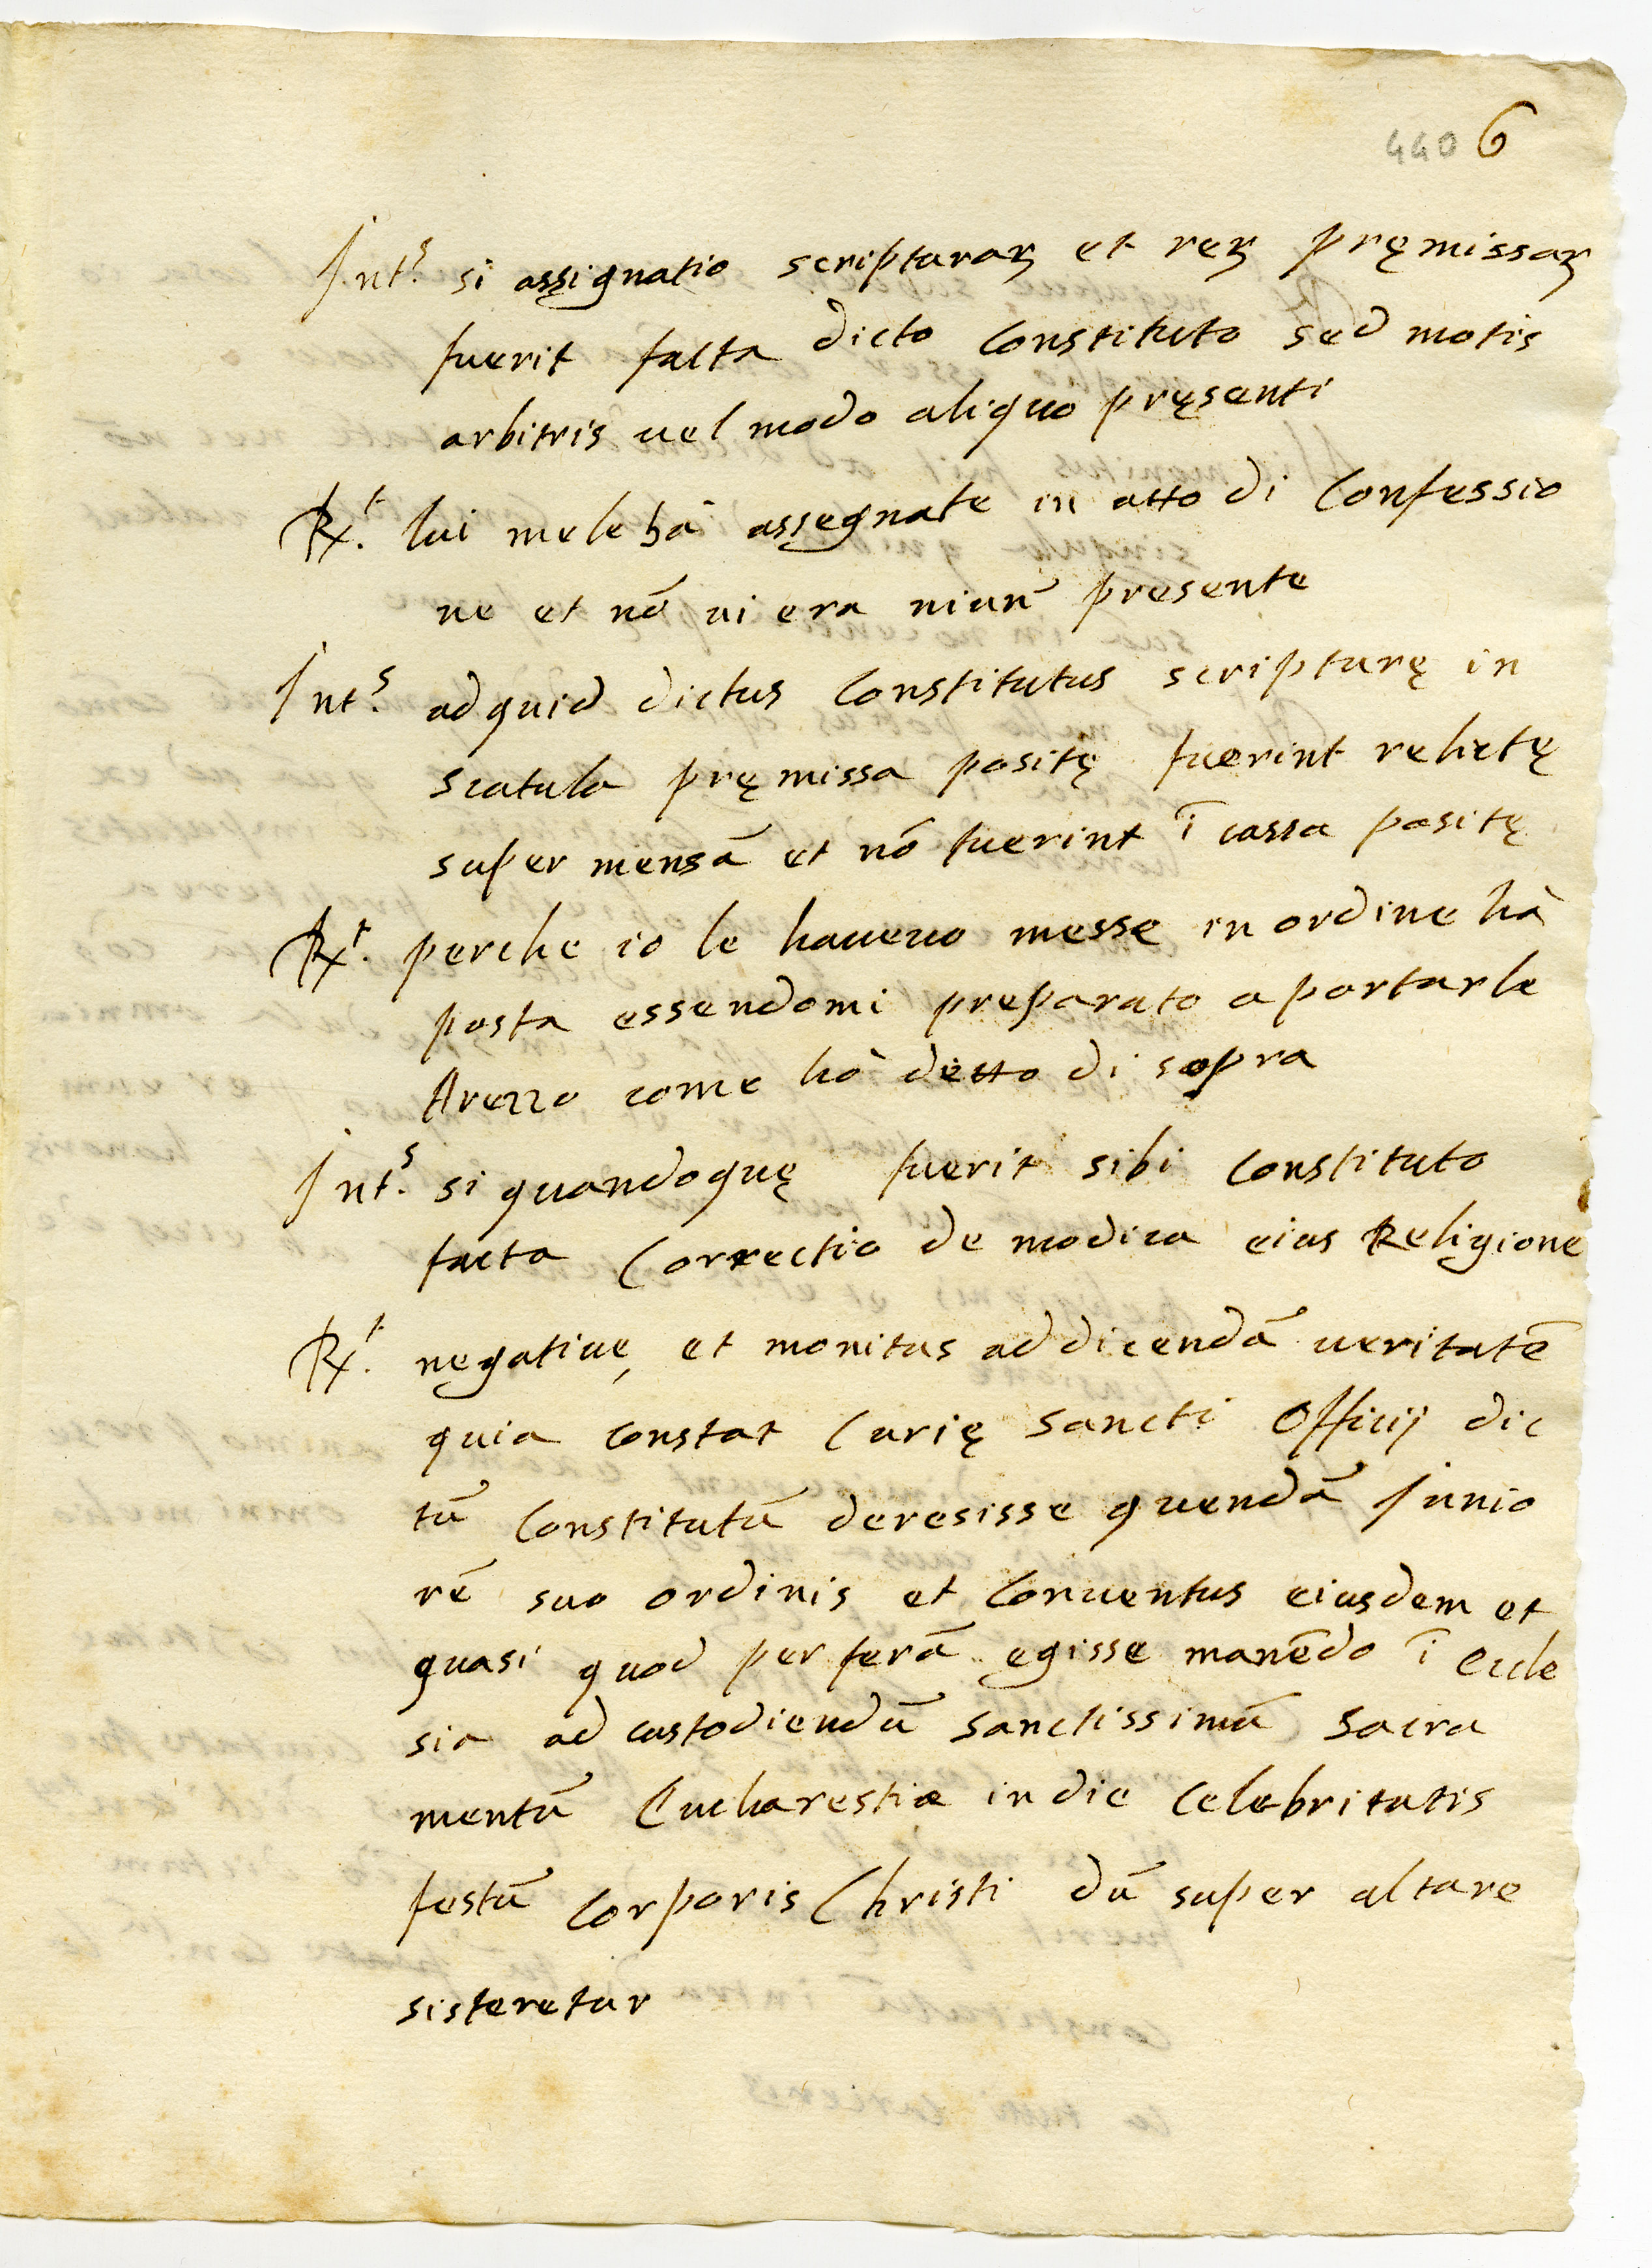 440 6
Int.s si assignatio scripturaꝝ et reꝝ pręmissaꝝ
fuerit facta dicto Constituto sed motis
arbitris uel modo aliquo pręsenti
Rx.t lui mele hà assegnate in atto di Confessio
ne et nō ui era niun̄ presente
Int.s ad quid dictus Constitutus scripturę in
scatula pręmissa positę fuerint relictę
super mensā et nō fuerint ī cassa positę
Rx.t perche io le haueuo messe in ordine hà
posta essendomi preparato a portarle
Arezzo come hò detto di sopra
Int.s si quandoquę fuerit sibi Constituto
facta Correctio de modica eius Religione
Rx.t negatiue, et monitus ad dicendā ueritatē
quia constat Curię Sancti Officij dic
tū Constitutū deresisse quendā Iunio
rē suo ordinis et Conuentus eiusdem et
quasi quod perferā egisse manēdo ī Eccle
sia ad custodiendū Sanctissimū Sacra
mentū Eucharestiæ in die Celebritatis
festū Corporis Christi dū super altare
sisteretur